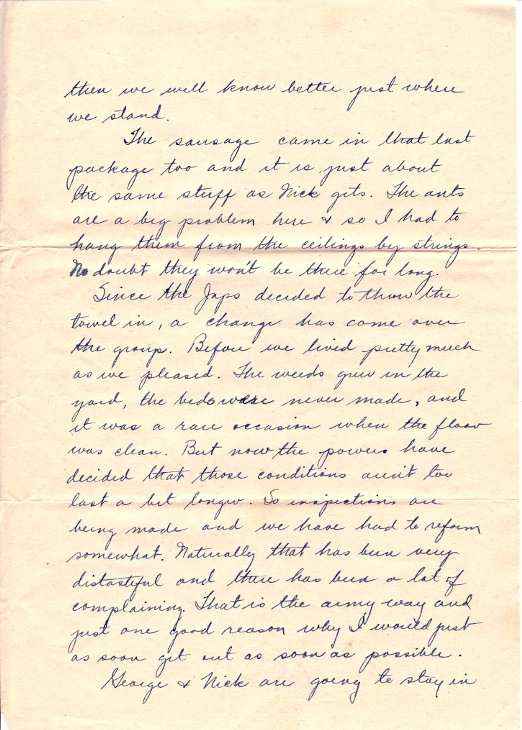 then we will know better just where
we stand.
The sausage came in that last
package too and it is just about
the same stuff as Nick gets. The ants
are a big problem here & so I had to
hang them from the ceilings by strings.
No doubt they won't be there for long.
Since the Japs decided to throw the
towel in, a change has come over
the group. Before we lived pretty much
as we pleased. The weeds grew in the
yard, the beds were never made, and
it was a rare occasion when the floor
was clean. But now the powers have
decided that those conditions aren't too
last a bit longer. So inspections are
being made and we have had to reform
somewhat. Naturally that has been very
distasteful and there has been a lot of
complaining. That is the army way and
just one good reason why I would just
as soon get out as soon as possible.
George & Nick are going to stay in